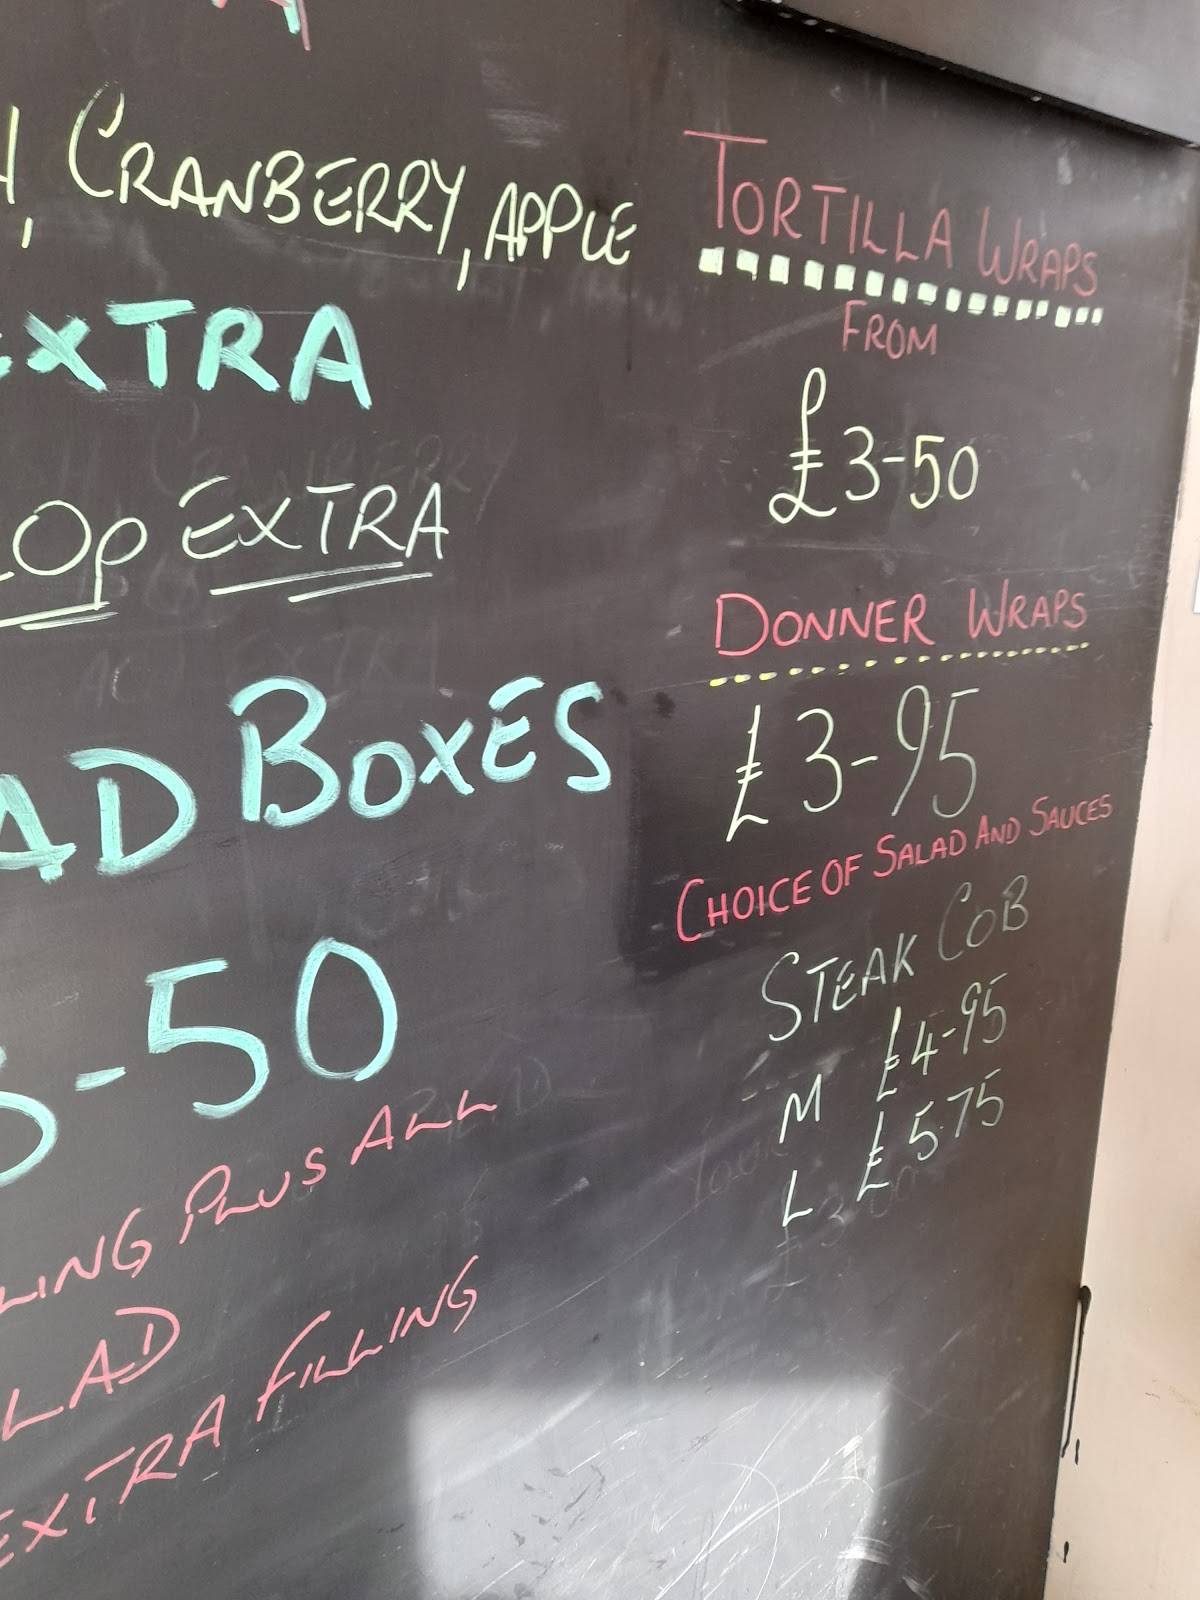 , CRANBERRY, APPLE
EXTRA
LOP EXTRA
AD BOXES
-50
LING PLUS ALL
LAD
EXTRA FILLING
TORTILLA WRAPS
FROM
£3-50
DONNER WRAPS
£3-95
CHOICE OF SALAD AND SAUCES
STEAK COB
M £4-95
L £5.75